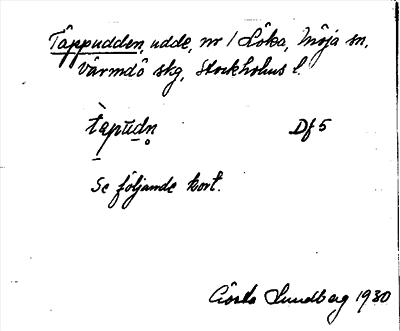 Täppudden, udde, nr 1 Löka, Möja sn,
Värmdö skg, Stockholms l.
tàpùdn̥ Df 5
Se följande kort.
Gösta Lundberg 1930